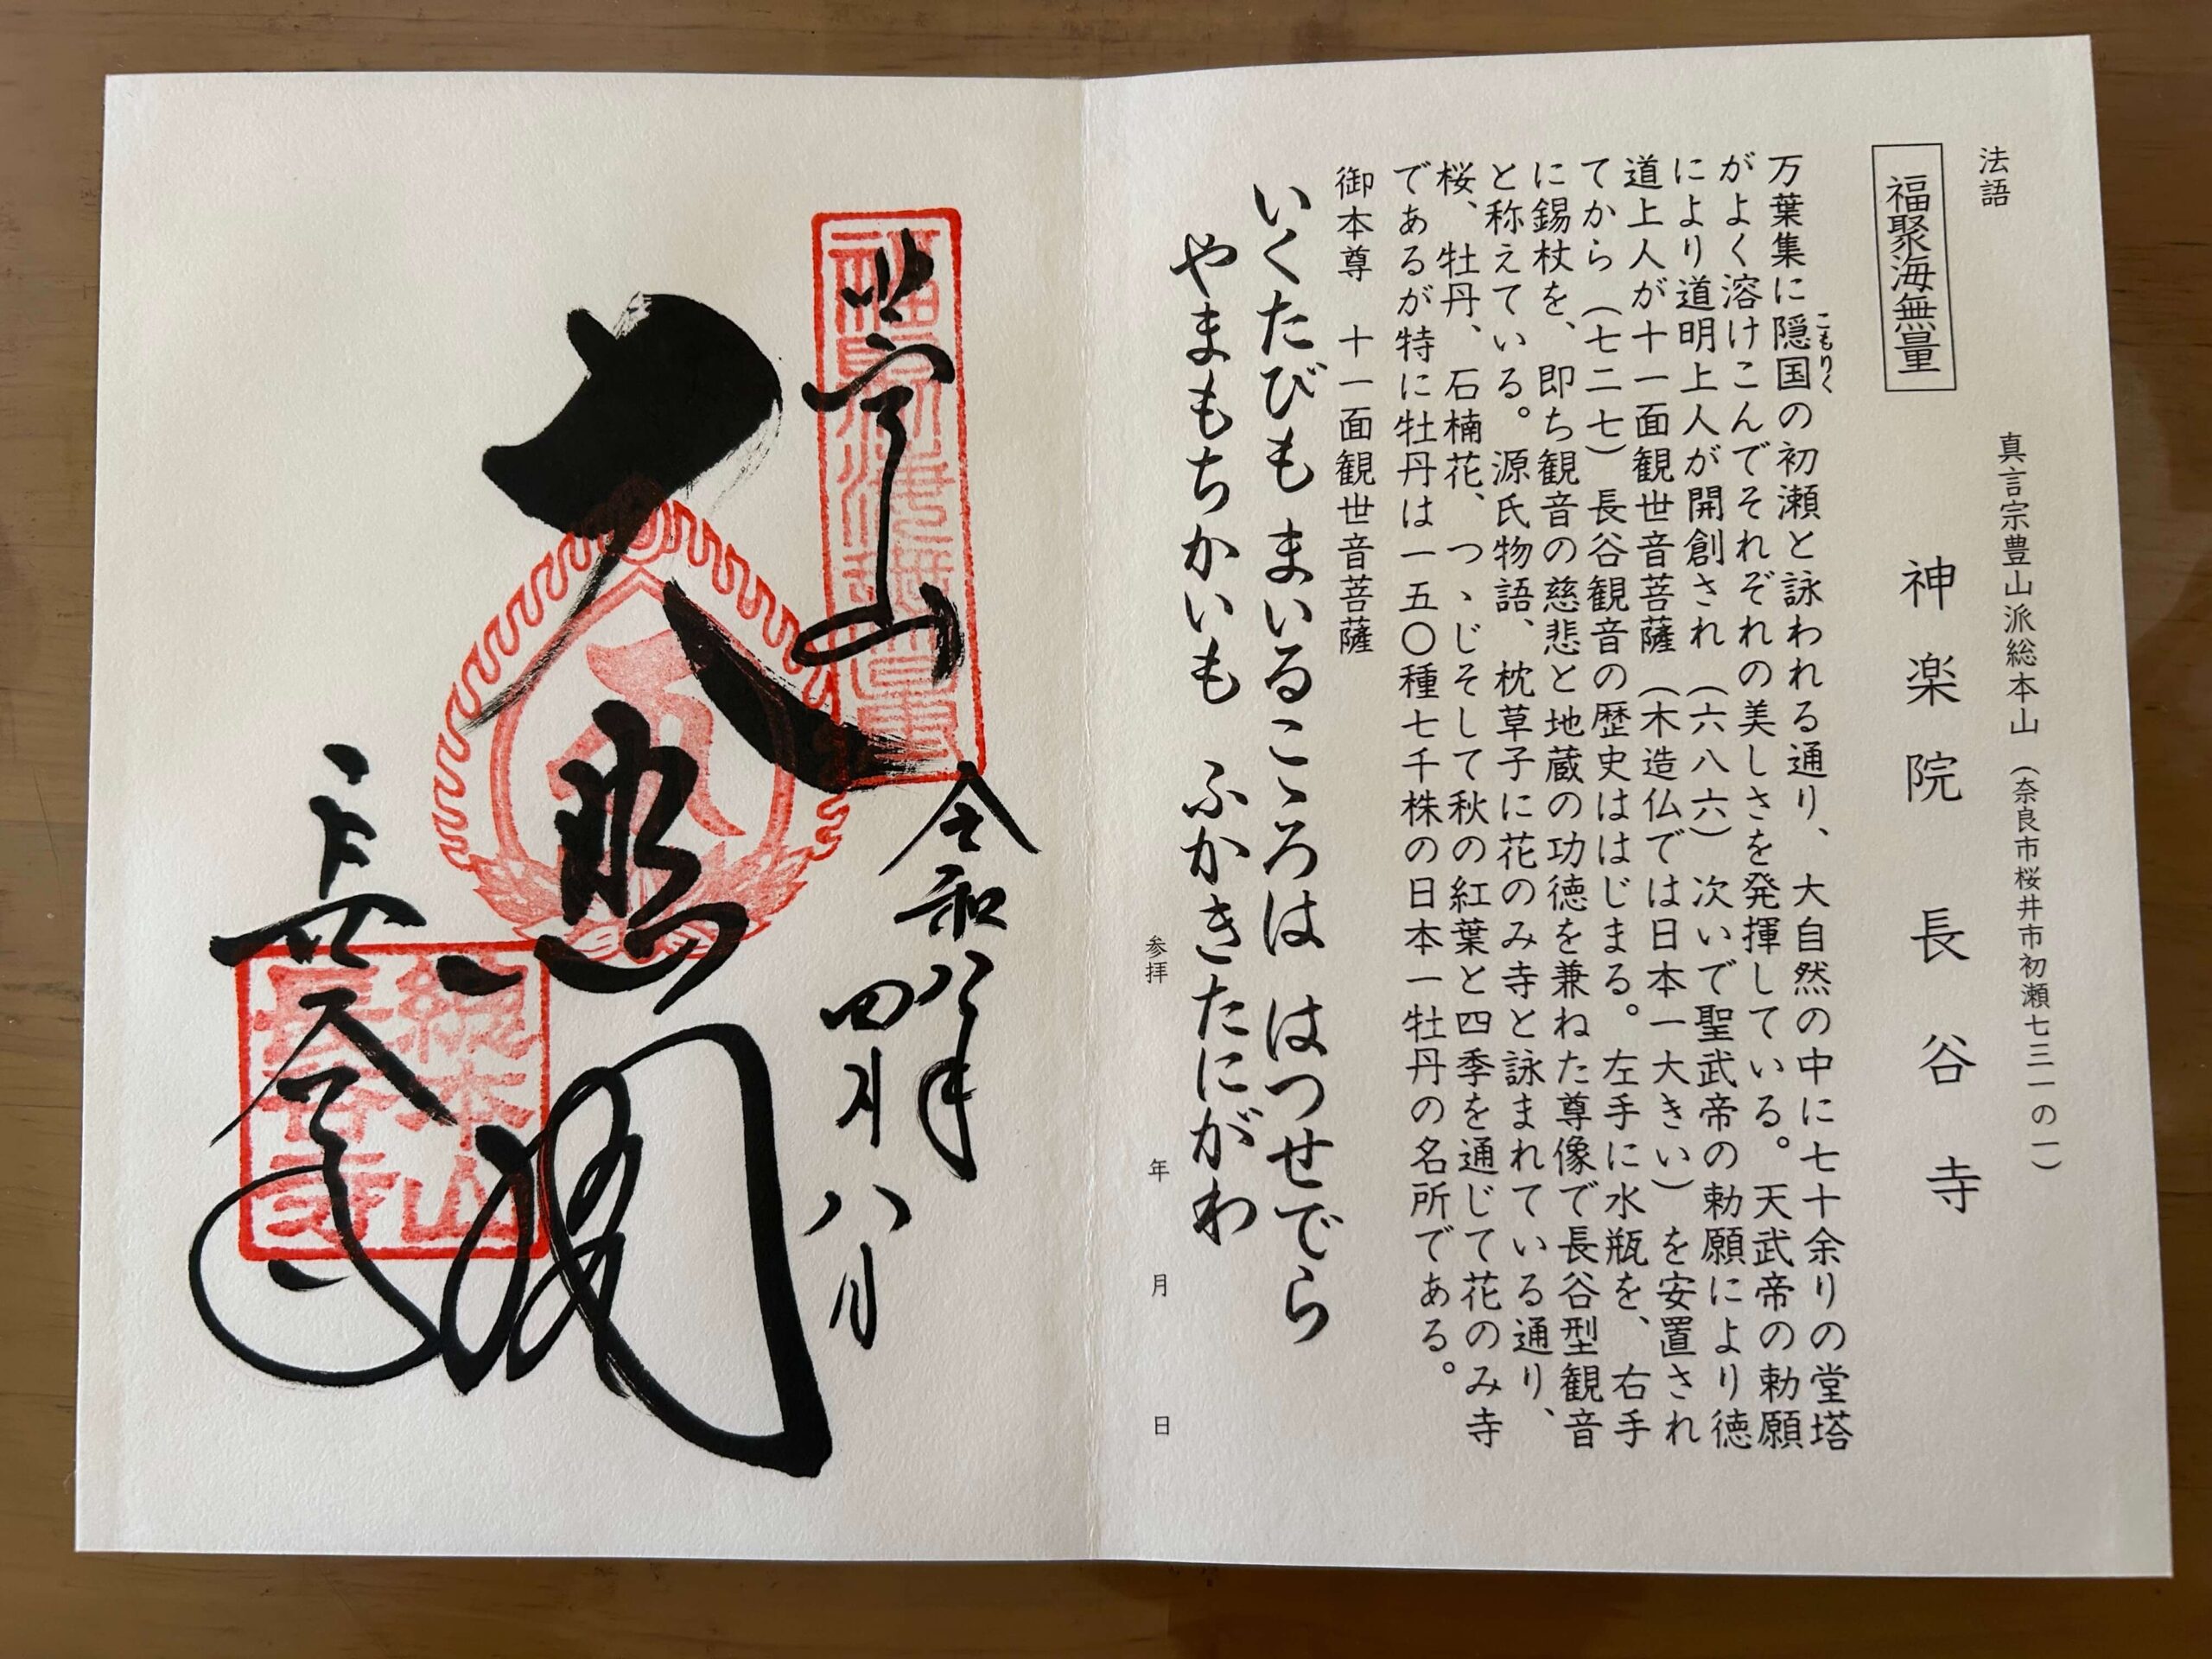 法語
福聚海無量
真言宗豊山派総本山（奈良市桜井市初瀬七三一の一）
神楽院 長谷寺
万葉集に隠国の初瀬と詠われる通り、大自然の中に七十余りの堂塔
こもりく
がよく溶けこんでそれぞれの美しさを発揮している。天武帝の勅願
により道明上人が開創され（六八六）次いで聖武帝の勅願により徳
道上人が十一面観世音菩薩（木造仏では日本一大きい）を安置され
てから（七二七）長谷観音の歴史ははじまる。左手に水瓶を、右手
に錫杖を、即ち観音の慈悲と地蔵の功徳を兼ねた尊像で長谷型観音
と称えている。源氏物語、枕草子に花のみ寺と詠まれている通り、
桜、牡丹、石楠花、つゝじそして秋の紅葉と四季を通じて花のみ寺
であるが特に牡丹は一五〇種七千株の日本一牡丹の名所である。
御本尊 十一面観世音菩薩
いくたびも まいるこゝろは はつせでら
やまもちかいも ふかきたにがわ
参拝 年 月 日
福聚海無量
令和八年
四月八日
大悲閣
長谷寺
総本山
長谷寺